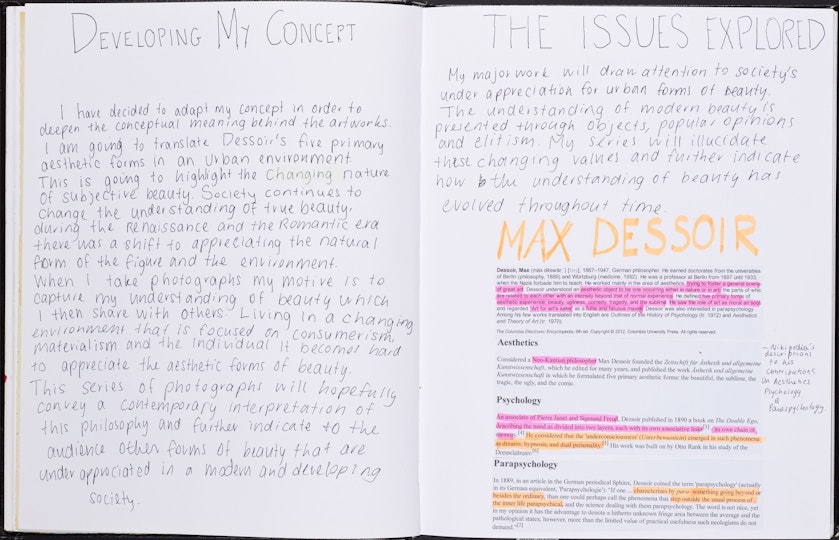 DEVELOPING MY CONCEPT
I have decided to adapt my concept in order to
deepen the conceptual meaning behind the artworks.
I am going to translate Dessoir's five primary
aesthetic forms in an urban environment.
This is going to highlight the changing nature
of subjective beauty. Society continues to
change the understanding of true beauty,
during the Renaissance and the Romantic era
there was a shift to appreciating the natural
form of the figure and the environment.
When I take photographs my motive is to
capture my understanding of beauty which
I then share with others. Living in a changing
environment that is focused on consumerism,
materialism and the individual it becomes hard
to appreciate the aesthetic forms of beauty.
This series of photographs will hopefully
convey a contemporary interpretation of
this philosophy and further indicate to the
audience other forms of beauty that are
under appreciated in a modern and developing
society.
THE ISSUES EXPLORED
My major work will draw attention to society's
under appreciation for urban forms of beauty.
The understanding of modern beauty is
presented through objects, popular opinions
and elitism. My series will illucidate
these changing values and further indicate
how the understanding of beauty has
evolved throughout time.
MAX DESSOIR
Dessoir, Max 1867–1947, German philosopher. He earned doctorates from the universities
of Berlin (philosophy, 1889) and Würzburg (medicine, 1892). He was a professor at Berlin from 1897 until 1933,
when the Nazis forbade him to teach. He worked mainly in the area of aesthetics, trying to foster a general science
of great art. Dessoir understood an aesthetic object to be one occurring either in nature or in art the parts of which
are related to each other with an intensity beyond that of normal experience. He defined five primary forms of
aesthetic experience: beauty, ugliness, comedy, tragedy, and the sublime. He saw the role of art as moral and social
and regarded "Art for art's sake" as a futile and fatuous maxim. Dessoir was also interested in parapsychology.
Among his few works translated into English are Outlines of the History of Psychology (tr. 1912) and Aesthetics
and Theory of Art (tr. 1970).
The Columbia Electronic Encyclopedia, 6th ed. Copyright © 2012, Columbia University Press. All rights reserved.
Aesthetics
Considered a Neo-Kantian philosopher Max Dessoir founded the Zeitschrift für Ästhetik und allgemeine
Kunstwissenschaft, which he edited for many years, and published the work Ästhetik und allgemeine
Kunstwissenschaft in which he formulated five primary aesthetic forms: the beautiful, the sublime, the
tragic, the ugly, and the comic.
Psychology
An associate of Pierre Janet and Sigmund Freud, Dessoir published in 1890 a book on The Double Ego,
describing the mind as divided into two layers, each with its own associative links - its own chain of
memory. He considered that the 'underconsciousness' (Unterbewusstsein) emerged in such phenomena
as dreams, hypnosis, and dual personality. His work was built on by Otto Rank in his study of the
Doppelgänger.
Parapsychology
In 1889, in an article in the German periodical Sphinx, Dessoir coined the term 'parapsychology' (actually
in its German equivalent, 'Parapsychologie'): "If one ... characterizes by para- something going beyond or
besides the ordinary, than one could perhaps call the phenomena that step outside the usual process of
the inner life parapsychical, and the science dealing with them parapsychology. The word is not nice, yet
in my opinion it has the advantage to denote a hitherto unknown fringe area between the average and the
pathological states; however, more than the limited value of practical usefulness such neologisms do not
demand."
– Wikipedia's
descriptions
to his
contributions
in Aesthetics
Psychology
&
Parapsychology